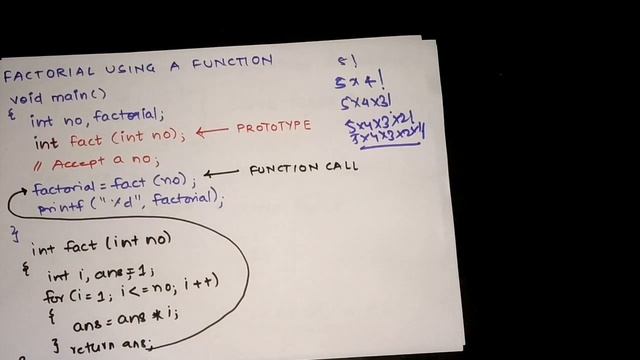 FACTORIAL USING A FUNCTION
void main()
{ int no, factorial;
int fact (int no); ← PROTOTYPE
// Accept a no;
factorial = fact (no); ← FUNCTION CALL
printf ("%d", factorial);
}
int fact (int no)
{ int i, ans=1;
for (i = 1; i <= no; i++)
{
ans = ans * i;
} return ans;
5!
5 x 4!
5x4x3!
5x4x3x2!
5x4x3x2x1!